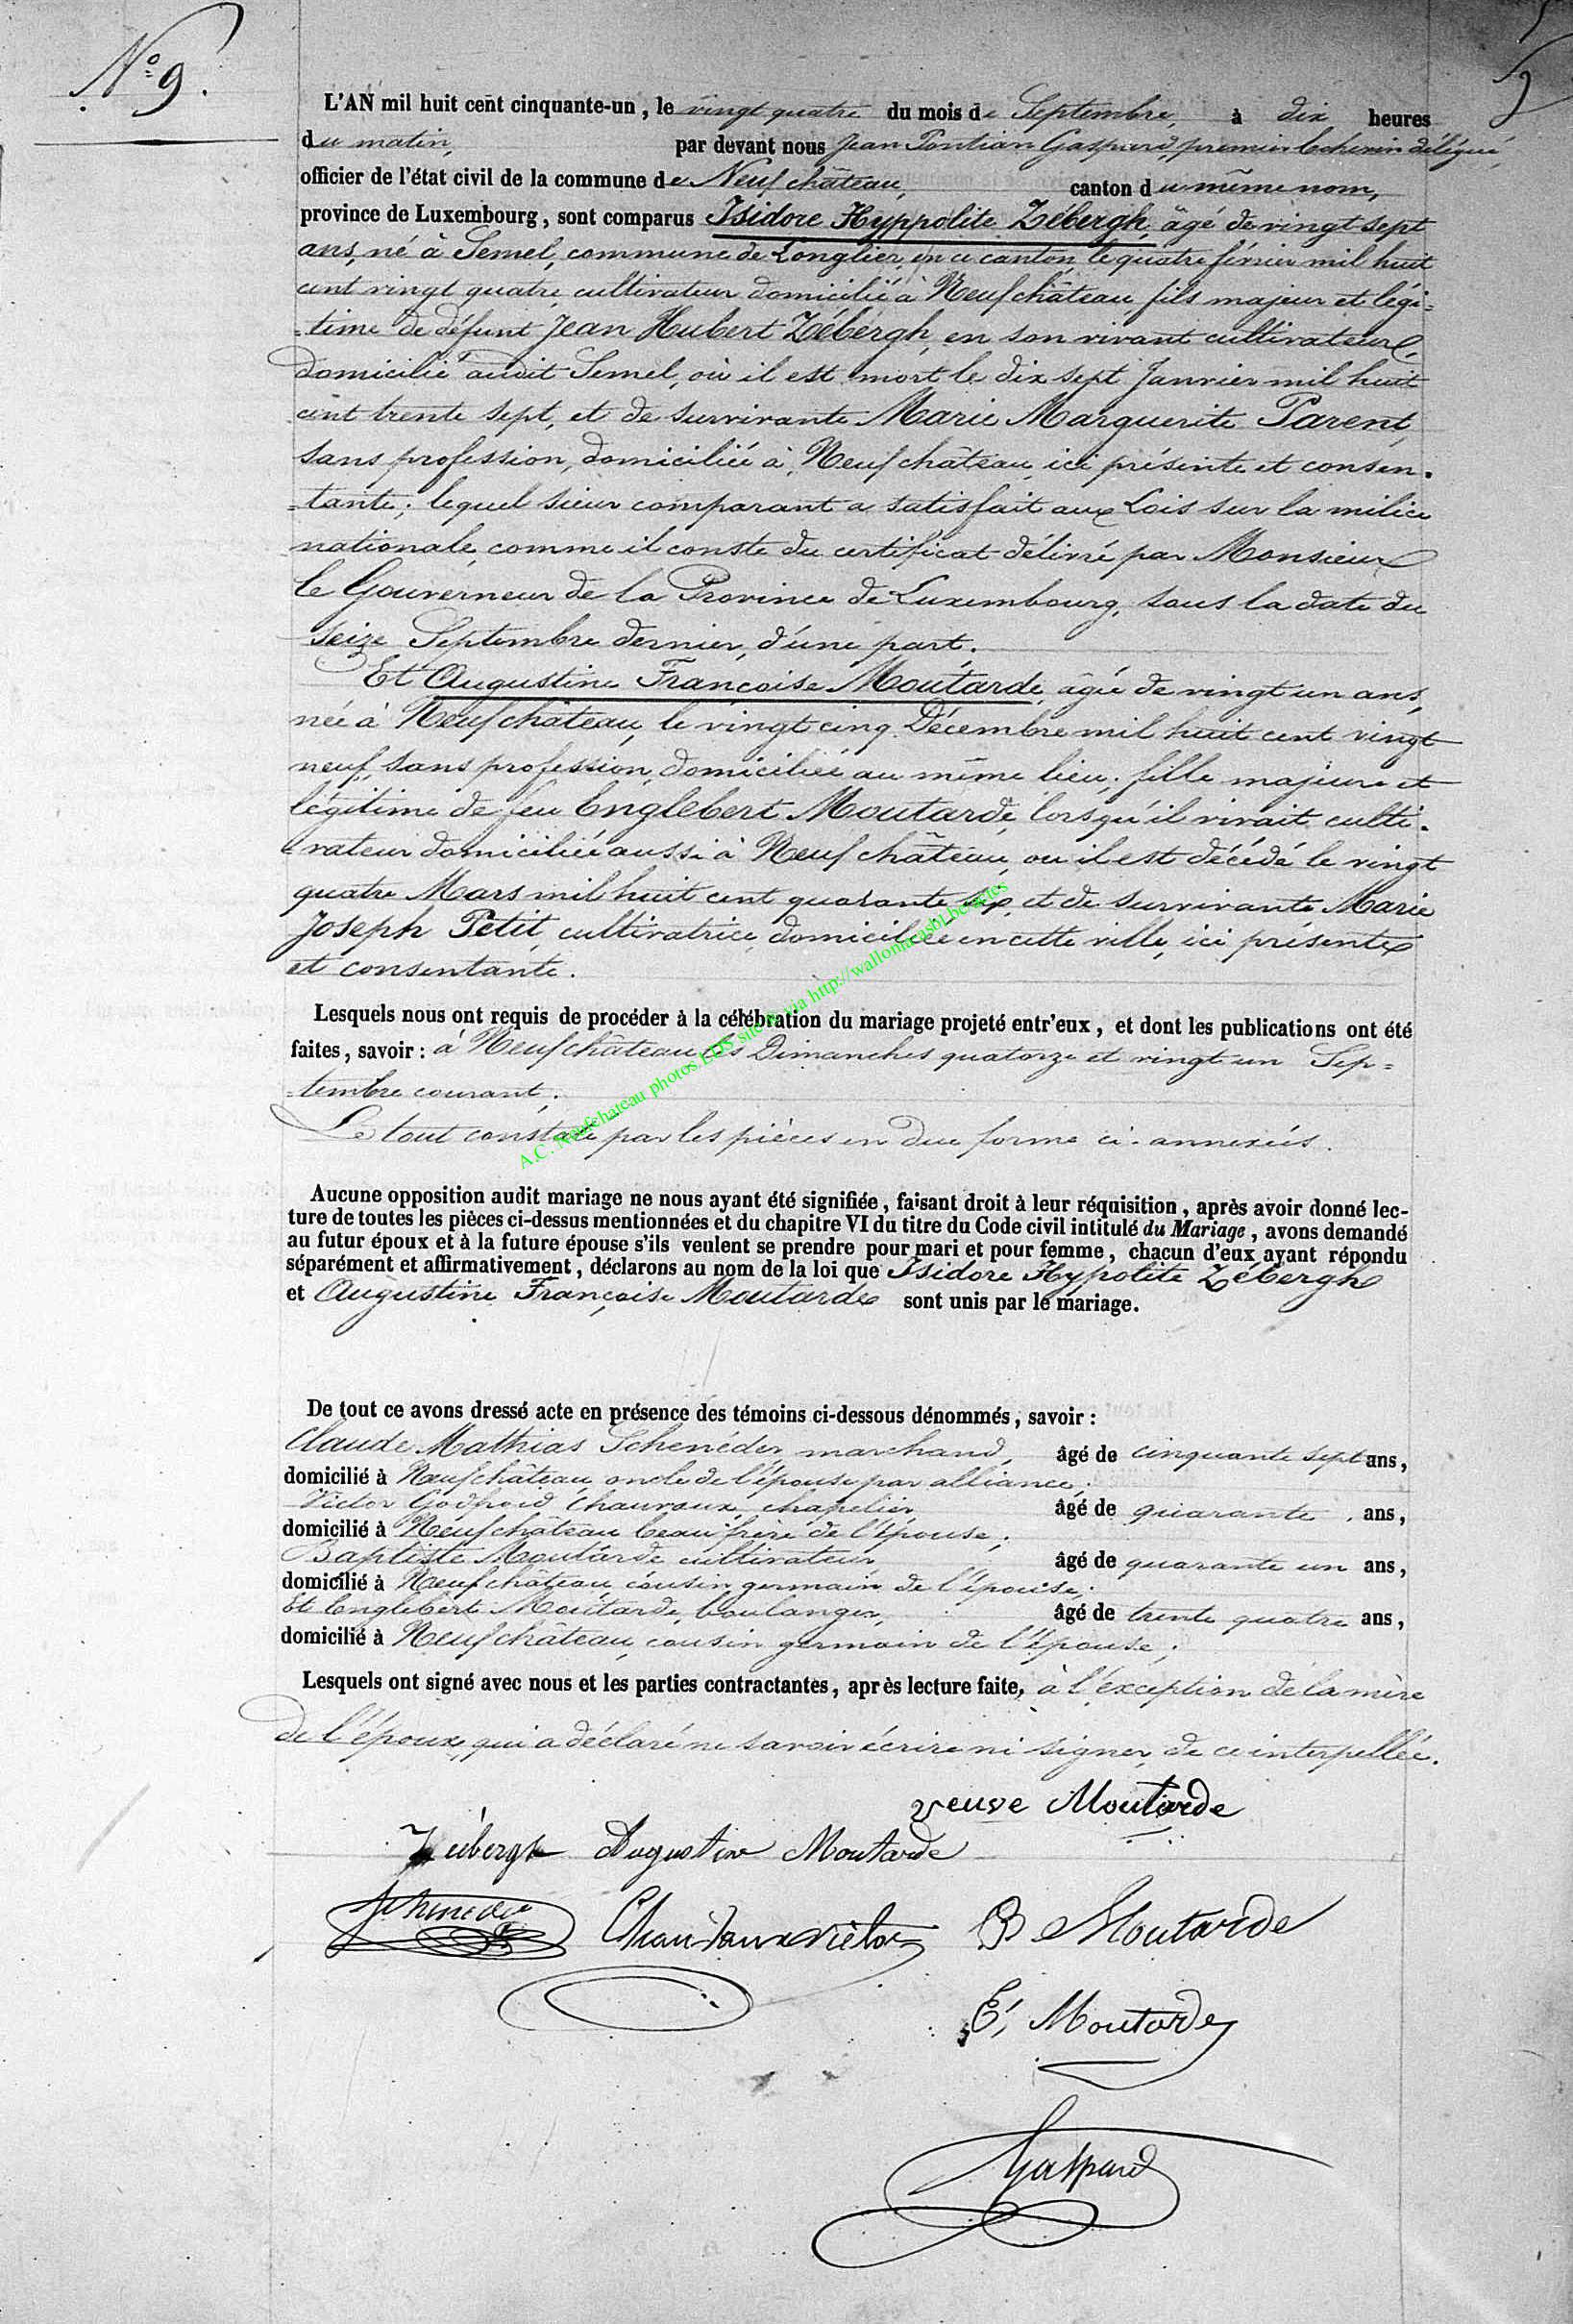 N° 9.
9
L'AN mil huit cent cinquante-un, le vingt quatre du mois de Septembre, à dix heures
du matin, par devant nous Jean Pontian Gaspard, premier Echevin délégué,
officier de l'état civil de la commune de Neufchâteau, canton du même nom,
province de Luxembourg, sont comparus Isidore Hyppolite Zébergh, âgé de vingt sept
ans, né à Semel, commune de Longlier, en ce canton, le quatre février mil huit
cent vingt quatre, cultivateur domicilié à Neufchâteau, fils majeur et légi-
-time de défunt Jean Hubert Zébergh, en son vivant cultivateur,
domicilié audit Semel, où il est mort le dix sept Janvier mil huit
cent trente sept, et de survivante Marie Marguerite Parent,
sans profession, domiciliée à Neufchâteau, ici présente et consen-
-tante; lequel sieur comparant a satisfait aux Lois sur la milice
nationale, comme il conste du certificat délivré par Monsieur
le Gouverneur de la Province de Luxembourg, sous la date du
seize Septembre dernier, d'une part.
Et Augustine Françoise Moutarde, âgée de vingt un ans,
née à Neufchâteau, le vingt cinq Décembre mil huit cent vingt
neuf, sans profession, domiciliée au même lieu, fille majeure et
légitime de feu Englebert Moutarde, lorsqu'il vivait culti-
-vateur domicilié aussi à Neufchâteau, ou il est décédé le vingt
quatre Mars mil huit cent quarante six, et de survivante Marie
Joseph Petit, cultivatrice, domiciliée en cette ville, ici présente
et consentante.
Lesquels nous ont requis de procéder à la célébration du mariage projeté entr'eux, et dont les publications ont été
faites, savoir: à Neufchâteau les Dimanches quatorze et vingt un Sep-
-tembre courant;
Le tout constaté par les pièces en due forme ci-annexées.
Aucune opposition audit mariage ne nous ayant été signifiée, faisant droit à leur réquisition, après avoir donné lec-
ture de toutes les pièces ci-dessus mentionnées et du chapitre VI du titre du Code civil intitulé du Mariage, avons demandé
au futur époux et à la future épouse s'ils veulent se prendre pour mari et pour femme, chacun d'eux ayant répondu
séparément et affirmativement, déclarons au nom de la loi que Isidore Hypolite Zébergh
et Augustine Françoise Moutarde sont unis par le mariage.
De tout ce avons dressé acte en présence des témoins ci-dessous dénommés, savoir:
Claude Mathias Schenéder, marchand, âgé de cinquante sept ans,
domicilié à Neufchâteau, oncle de l'épouse par alliance;
Victor Godfroid Chauvaux, chapelier, âgé de quarante ans,
domicilié à Neufchâteau beau-frère de l'épouse;
Baptiste Moutarde cultivateur, âgé de quarante un ans,
domicilié à Neufchâteau, cousin germain de l'épouse;
Et Englebert Moutarde, boulanger, âgé de trente quatre ans,
domicilié à Neufchâteau, cousin germain de l'épouse;
Lesquels ont signé avec nous et les parties contractantes, après lecture faite, à l'exception de la mère
de l'époux, qui a déclaré ne savoir écrire ni signer, de ce interpellée.
veuve Moutarde
Zébergh Augustine Moutarde
Scheneder Chauvaux Victor B Moutarde
E. Moutarde
Gaspard